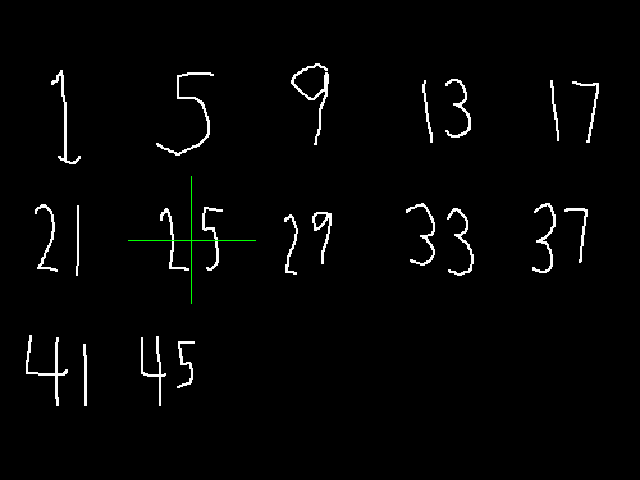 1 5 9 13 17
21 25 29 33 37
41 45